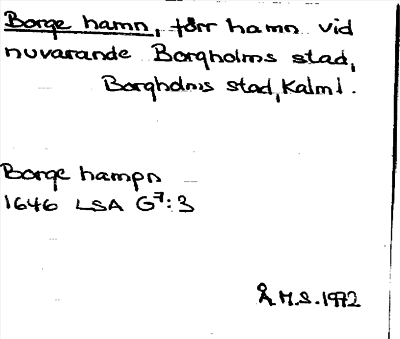 Borge hamn, förr hamn vid
nuvarande Borgholms stad,
Borgholms stad, Kalm l.
Borge hampn
1646 LSA G7:3
Å M.S. 1972